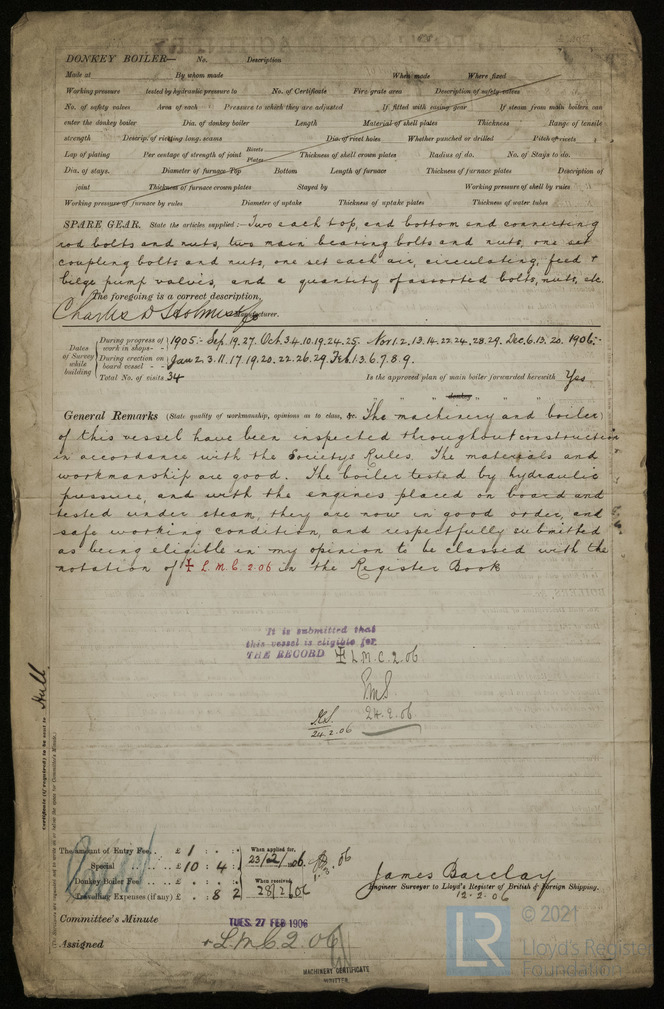 DONKEY BOILER— No. Description
Made at By whom made When made Where fixed
Working pressure tested by hydraulic pressure to No. of Certificate Fire grate area Description of safety valves
No. of safety valves Area of each Pressure to which they are adjusted If fitted with easing gear If steam from main boilers can
enter the donkey boiler Dia. of donkey boiler Length Material of shell plates Thickness Range of tensile
strength Descrip. of riveting long. seams Dia. of rivet holes Whether punched or drilled Pitch of rivets
Lap of plating Per centage of strength of joint Rivets Plates Thickness of shell crown plates Radius of do. No. of Stays to do.
Dia. of stays. Diameter of furnace Top Bottom Length of furnace Thickness of furnace plates Description of
joint Thickness of furnace crown plates Stayed by Working pressure of shell by rules
Working pressure of furnace by rules Diameter of uptake Thickness of uptake plates Thickness of water tubes
SPARE GEAR. State the articles supplied:— Two each top, and bottom end connecting
rod bolts and nuts, two main bearing bolts and nuts, one set
coupling bolts and nuts, one set each air, circulating, feed +
bilge pump valves, and a quantity of assorted bolts, nuts, etc.
The foregoing is a correct description,
Charles D Holmes & Co Manufacturer.
Dates of Survey while building
During progress of work in shops- - 1905:- Sep. 19. 27. Oct. 3. 4. 10. 19. 24. 25. Nov 1. 2. 13. 14. 22. 24. 28. 29. Dec. 6. 13. 20. 1906:-
During erection on board vessel - - Jan 2. 3. 11. 17. 19. 20. 22. 26. 29. Feb. 1. 3. 6. 7. 8. 9.
Total No. of visits 34 Is the approved plan of main boiler forwarded herewith Yes
" " " donkey " " "
General Remarks (State quality of workmanship, opinions as to class, &c. The machinery and boiler)
of this vessel have been inspected throughout construction
in accordance with the Society's Rules. The materials and
workmanship are good. The boiler tested by hydraulic
pressure, and with the engines placed on board and
tested under steam, they are now in good order, and
safe working condition, and respectfully submitted
as being eligible in my opinion to be classed with the
notation of ✠ L.M.C. 2.06 in the Register Book
It is submitted that
this vessel is eligible for
THE RECORD ✠ L.M.C. 2.06
24.2.06
24.2.06
Certificate (if required) to be sent to Hull
The amount of Entry Fee. . £ 1 : . : .
Special £ 10 : 4 :
Donkey Boiler Fee £ . : . : .
Travelling Expenses (if any) £ . : 8 : 2
When applied for,
23/2/06
When received,
28/2/06
James Barclay
Engineer Surveyor to Lloyd's Register of British & Foreign Shipping.
12.2.06
Committee's Minute TUES. 27 FEB 1906
Assigned + L.M.C. 2.06
MACHINERY CERTIFICATE
WRITTEN
LR
© 2021
Lloyd's Register
Foundation